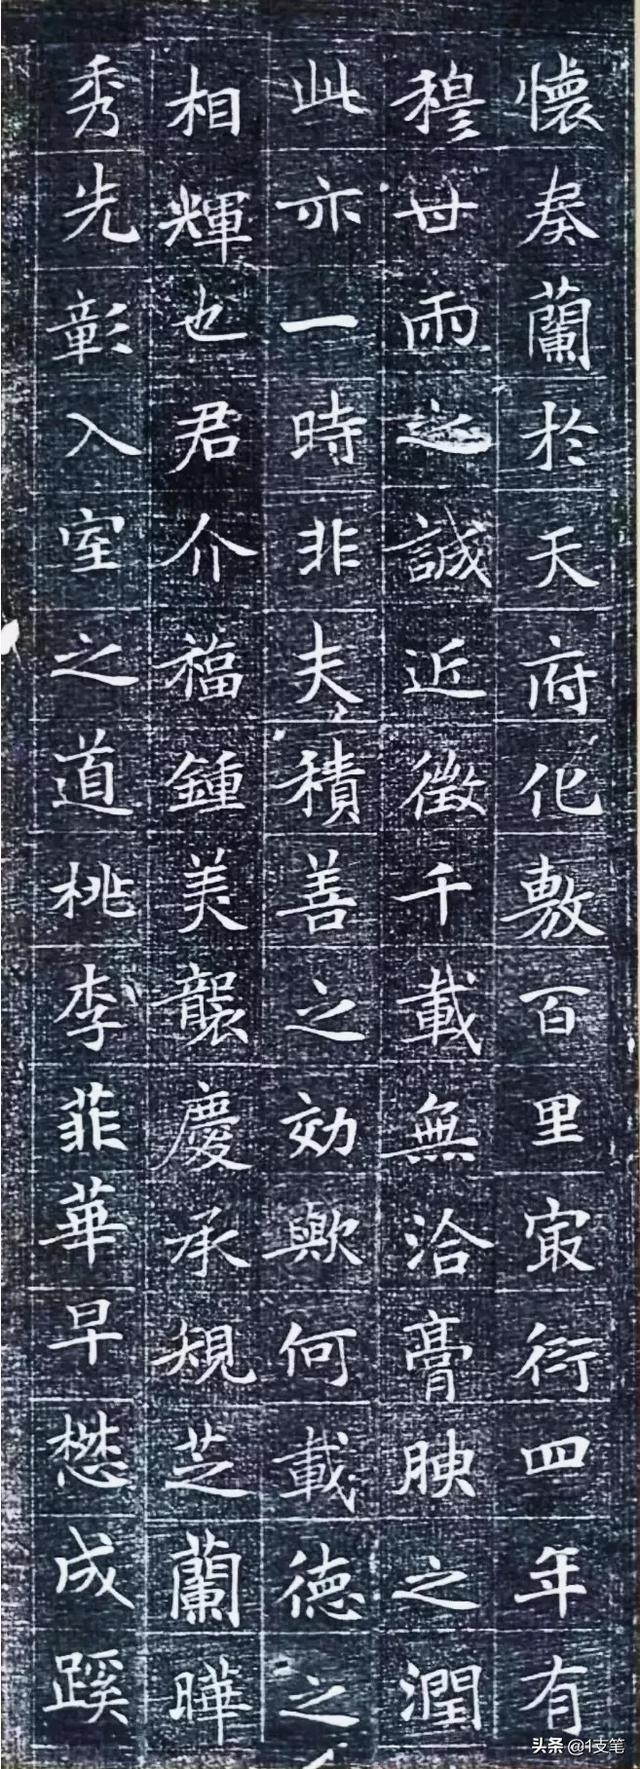 懷奏蘭於天府化敷百里㝡衍四年有
穆廿雨之誠近徵千載無洽膏腴之潤
此亦一時非夫積善之効歟何載德之
相輝也君介福鍾美襲慶承規芝蘭曄
秀先彰入室之道桃李菲華早懋成蹊
头条 @1支笔